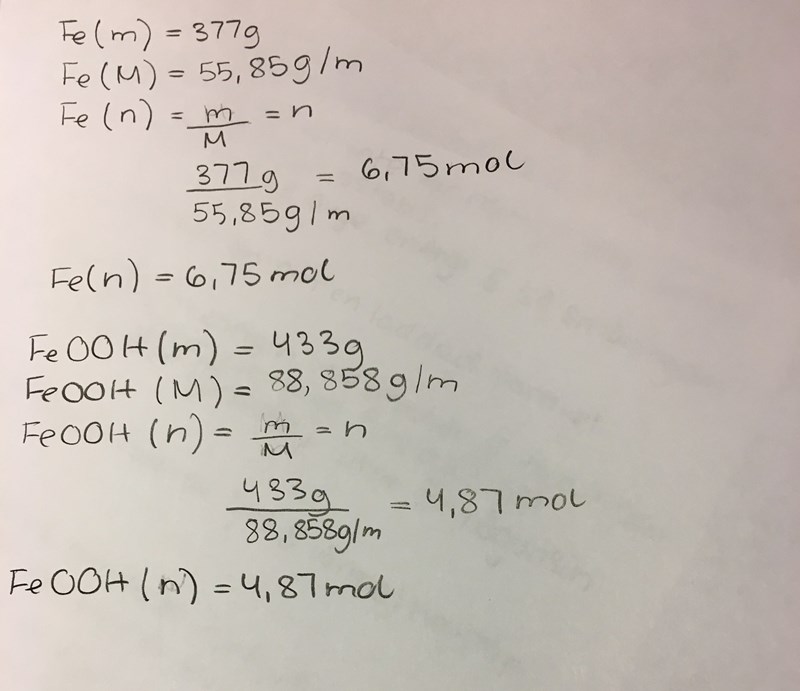 Fe(m) = 377g
Fe(M) = 55,85g/m
Fe(n) = m/M = n
377g/55,85g/m = 6,75mol
Fe(n) = 6,75mol
FeOOH(m) = 433g
FeOOH (M) = 88,858g/m
FeOOH (n) = m/M = n
433g/88,858g/m = 4,87mol
FeOOH(n) = 4,87mol